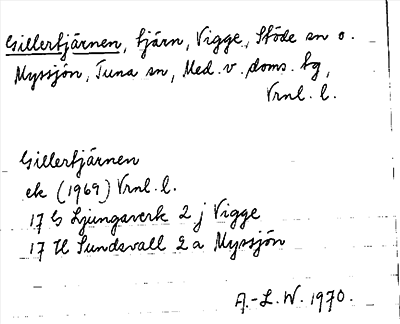 Gillertjärnen, tjärn, Vigge, Stöde sn o.
Myssjön, Tuna sn, Med. v. doms. bg,
Vrnl. l.
Gillertjärnen
ek (1969) Vrnl. l.
17 G Ljungaverk 2 j Vigge
17 H Sundsvall 2 a Myssjön
A.-L. W. 1970.